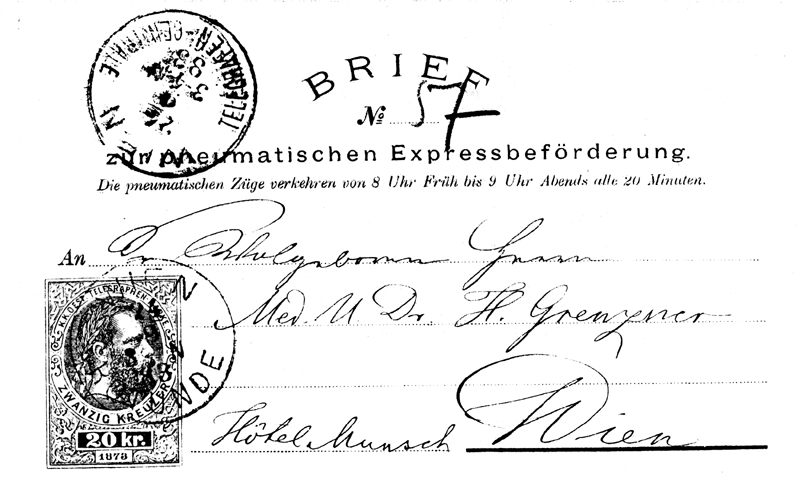 WIEN
TELEGRAFEN-CENTRALE
BRIEF
No 57
zur pneumatischen Expressbeförderung.
Die pneumatischen Züge verkehren von 8 Uhr Früh bis 9 Uhr Abends alle 20 Minuten.
An Sr Wolgeboren Herrn
Med. U Dr. H.
Hôtel Munsch Wien
K.K. OEST. TELEGRAPHEN
ZWANZIG KREUZER
20 kr.
1873
WIEN